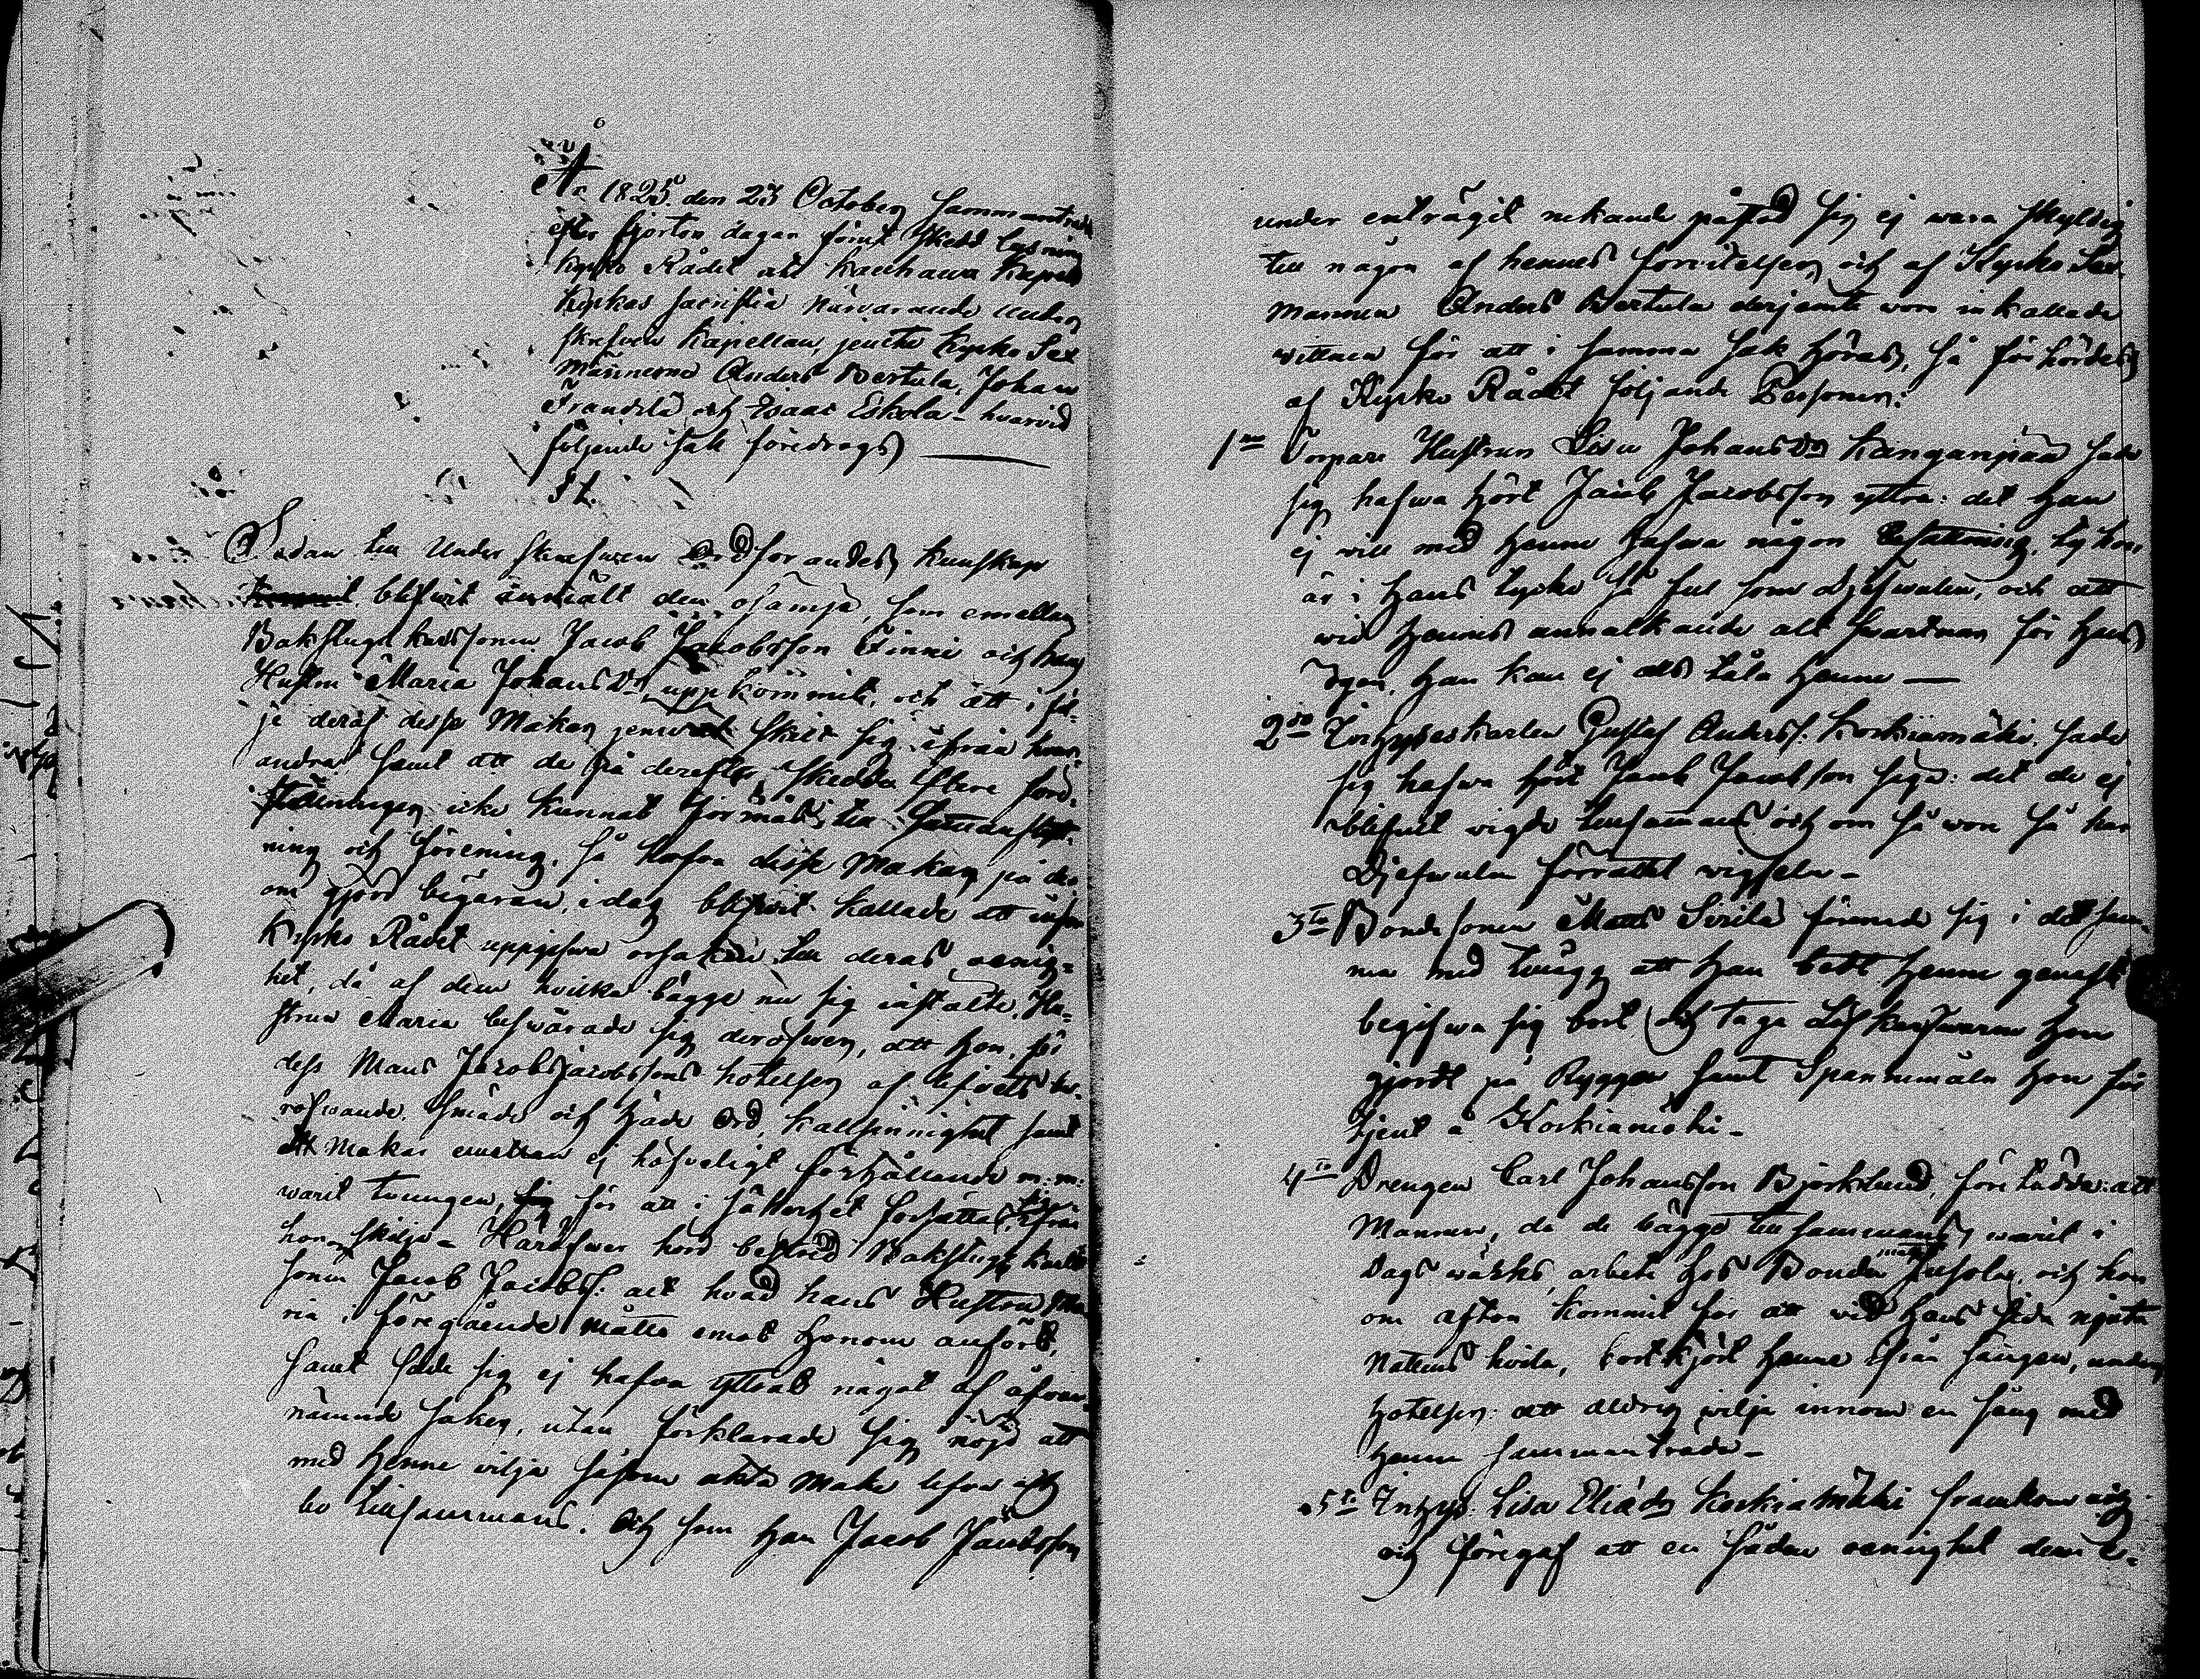 År 1825 den 23 October sammanträdde
efter fjorton dagar förut skedd lysning
Kyrko Rådet uti Kauhawa Kapells
Kyrkas sacristia närvarande under
skrefven Kapellan, jemte Kyrko Sex
männerne Anders Bertula, Johan
Frandila och Isaac Eskola - hvarvid
följande sak föredrogs
§ 1.
Sedan till Under skrefwen Ordförandes kunskap
blifwit anmält den osämja, som emellan
Bakstugukarlssonen Jacob Jacobsson Finni och hans
Hustru Maria JohansDr uppkommit, och att i föl-
je deraf desse Makar skilt sig ifrån hvar-
andra, samt att de på derefter skedda
icke kunnat förmås till
ning och förening, så hafva desse Makar på der-
om gjord begäran, i dag blifwit kallade att inför
Kyrko Rådet uppgifwa orsaken till deras oenig-
het, då af dem hvilka bägge nu sig inställte, Hu-
strun Maria beswärade sig deröfwer, att hon, för
dess Mans Jacob Jacobssons hotelser af lifvets be-
röfwande, smäde och håde ord, kallsinnighet samt
ett Makar emellan ej höfveligt förhållande m: m:
warit tvungen, för att i säkerhet försättas, sig ifrån
honom skilja - Häröfwer hörd bestred Bakstugu karls
sonen Jacob Jacobss: allt hvad hans Hustru Ma
ria i föregående måtto emot honom anfört,
samt sade sig ej hafva yttrat något af ofvan-
nämnde saker, utan förklarade sig nöjd att
med henne vilja såsom äkta Make lefva och
bo tillsammans. Och som han Jacob Jacobsson
under enträgit nekande påstod sig ej wara skyldig
till någon af hennes förvitelser och af Kyrko Sex
mannen Anders Bertula derjemte woro inkallade
wittnen för att i samma sak höras, så förhördes
af Kyrko Rådet följande Personer:
1mo Torpare Hustrun Lisa JohansDr Kanganpää sade
sig hafwa hört Jacob Jacobsson yttra: det han
ej will med henne hafwa någon befattning, ty hon
är i hans tycke så ful som Djefwulen, och att
wid hennes annalkande allt swartnar för hans
ögon, han kan ej alls tåla henne —
2do Inhyseskarlen Gustaf Anderss: Korkiamäki, sade
sig hafwa hört Jacob Jacobsson säga: det de ej
blifwit wigde tillsammans och om så wore så har
Djefwulen förrättat wigseln -
3tio Bondesonen Matts Svila förenade sig i det sam-
ma med tillägg att han bedt henne genast
begifwa sig bort och taga Löfkärfwarne hon
gjordt på Ryggen samt Spannmåln hon för
tjent å Korkiamäki -
4to Drengen Carl Johansson Björklund, föreladde: att
Mannen, då de bägge tillsammans warit i
Dags wärks arbete hos Bonden Matts Jusola, och hon
om afton kommit för att wid hans sida njuta
nattens hvila, bortkjört henne ifrån sängen, under
hotelser: att aldrig vilja innom en säng med
henne sammanträda -
5to Inhys: Lisa EliaDr Korkiamäki framkom och
och föregaf att en sådan oenighet dem e-